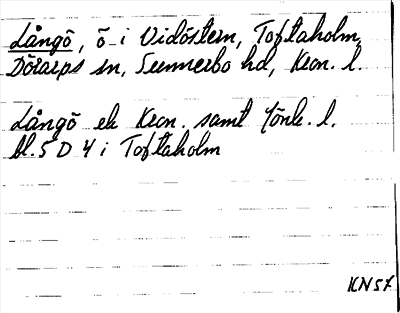 Långö, ö i Vidöstern, Toftaholm,
Dörarps sn, Sunnerbo hd, Kron. l.
Långö ek Kron. samt Jönk. l.
bl. 5 D 4 i Toftaholm
KN57